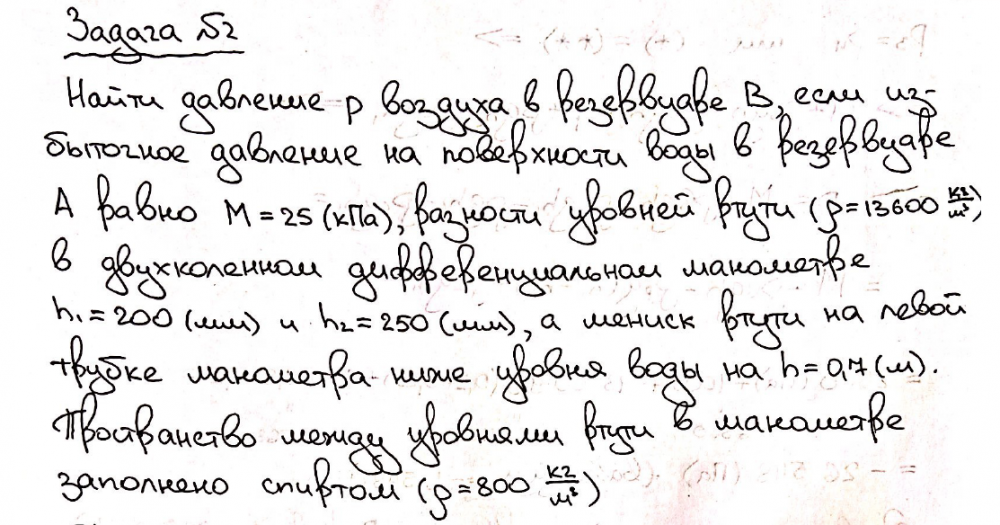 Задача №2
Найти давление p воздуха в резервуаре B, если из-
быточное давление на поверхности воды в резервуаре
A равно M = 25 (кПа), разности уровней ртути (ρ=13600 кг/м³)
в двухколенном дифференциальном манометре
h₁ = 200 (мм) и h₂ = 250 (мм), а мениск ртути на левой
трубке манометра ниже уровня воды на h = 0,7 (м).
Пространство между уровнями ртути в манометре
заполнено спиртом (ρ = 800 кг/м³)